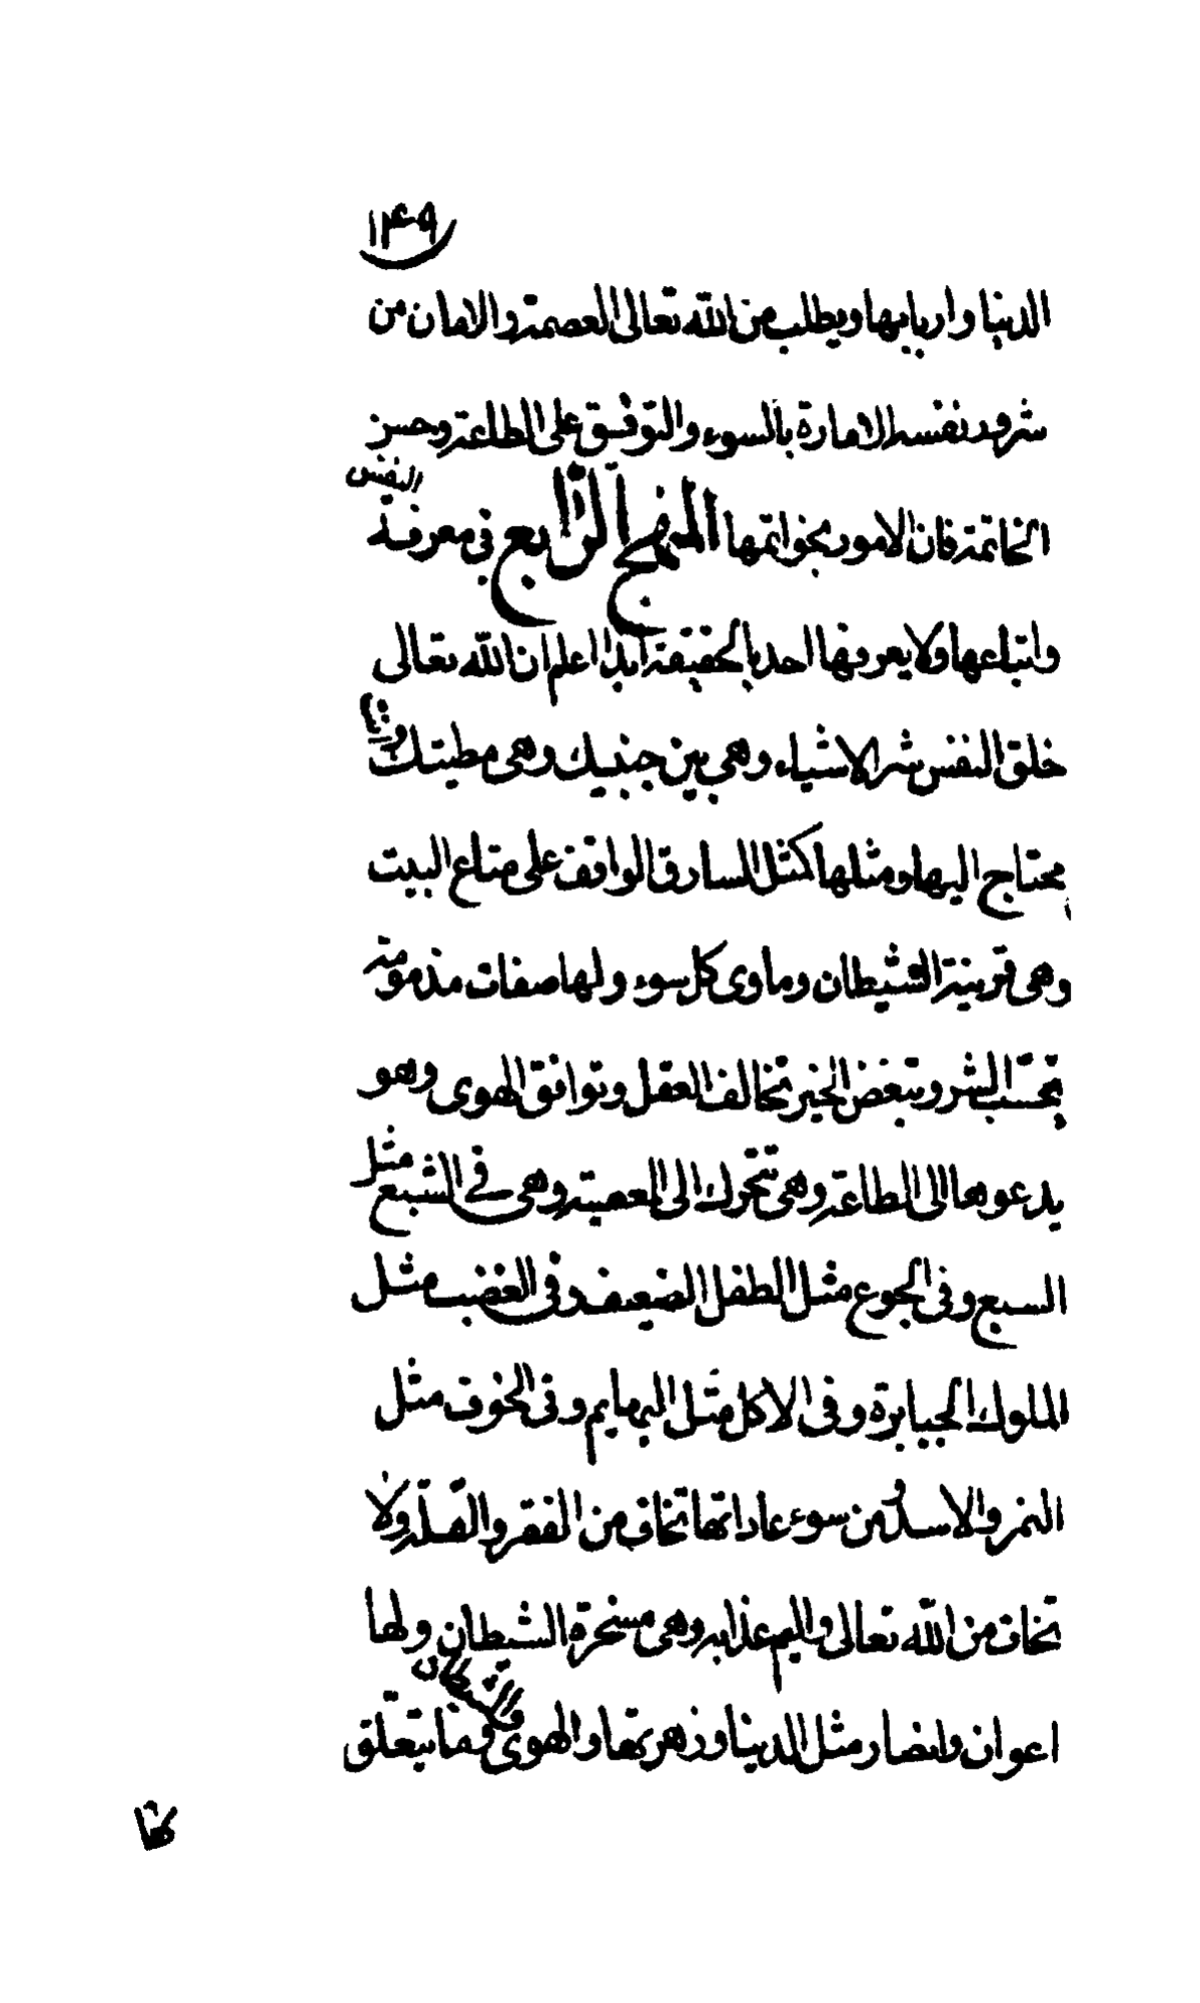 ١٣٤٩
الدنيا واربابها ويطلب من الله تعالى العصمة والامان من
شرور نفسه الامارة بالسوء والتوفيق على الطاعة وحسن
الخاتمة فان الامور بخواتمها المنهج الرابع في معرفة النفس
واتباعها ولا يعرفها احد بالحقيقة ابدا اعلم ان الله تعالى
خلق النفس شر الاشياء وهي بين جنبيك وهي مطيتك وانت
محتاج اليها ومثلها كمثل السارق الواقف على متاع البيت
وهي قرينة الشيطان وماوى كل سوء ولها صفات مذمومة
تحب الشر وتبغض الخير تخالف العقل وتوافق الهوى وهو
يدعوها الى الطاعة وهي تتحرك الى المعصية وهي في الشبع مثل
السبع وفي الجوع مثل الطفل الضعيف وفي الغضب مثل
الملوك الجبابرة وفي الاكل مثل البهايم وفي الخوف مثل
النمر والاسد ومن سوء عاداتها تخاف من الفقر والقلة ولا
تخاف من الله تعالى واليم عذابه وهي مسخرة الشيطان ولها
اعوان وانصار مثل الدنيا وزهرتها والهوى والشيطان وما يتعلق